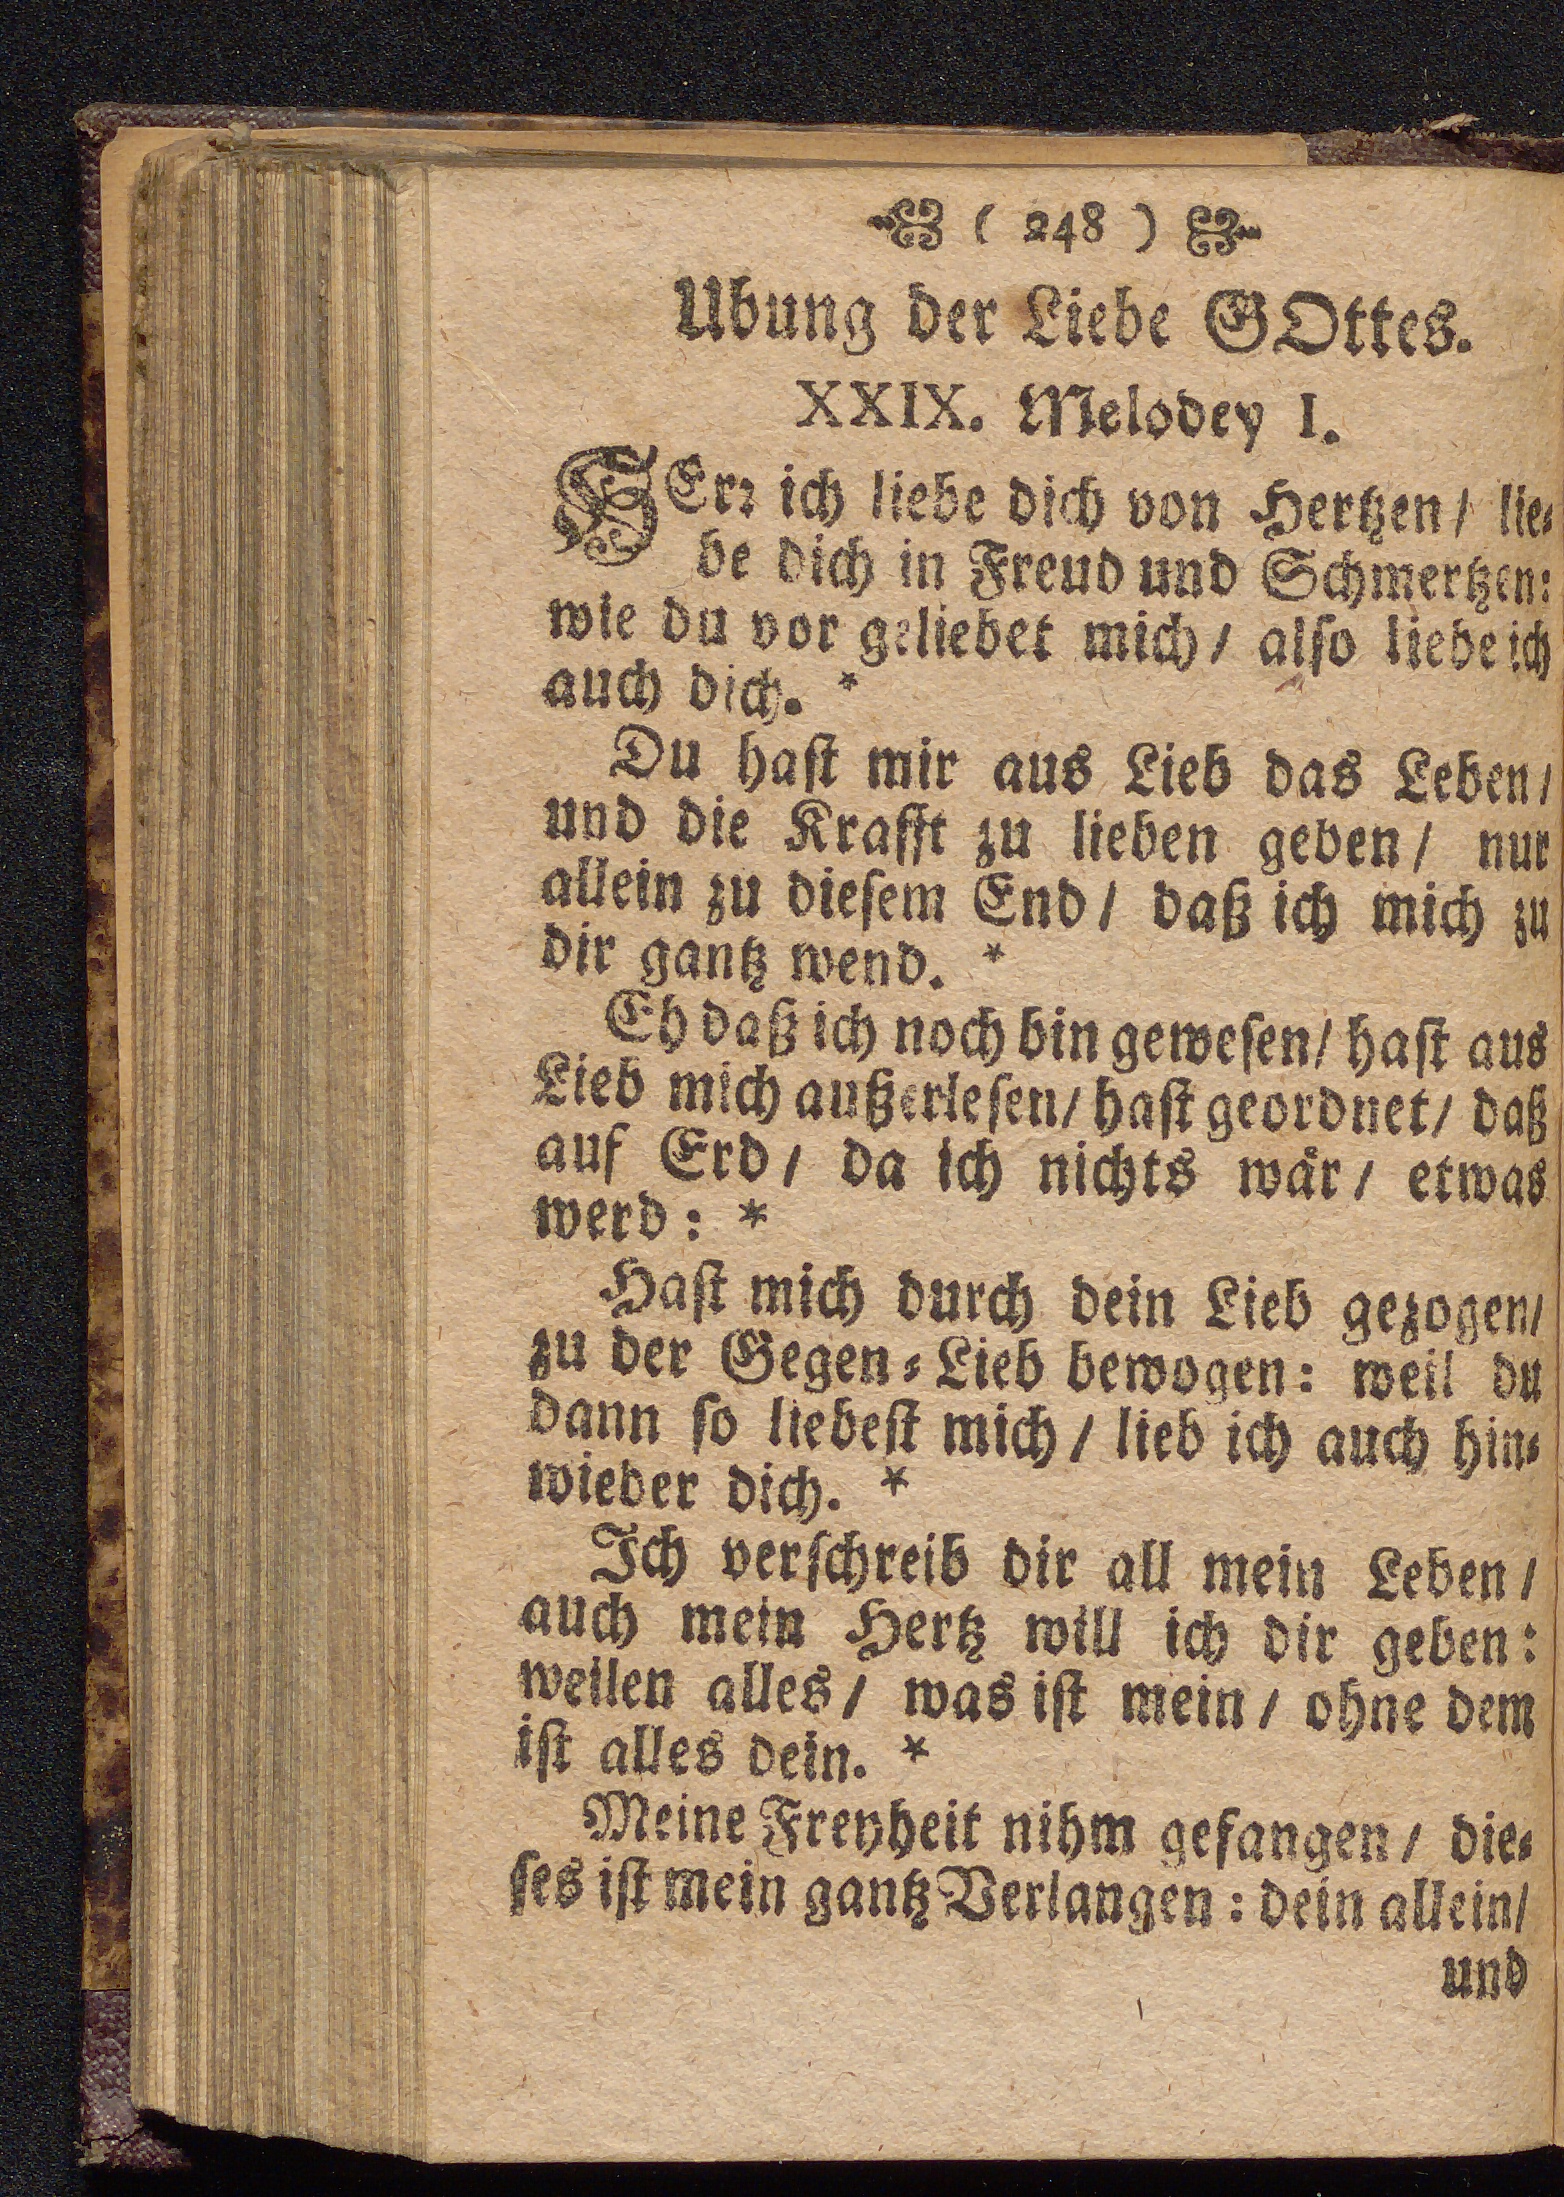 ( 248 )
Ubung der Liebe GOttes.
XXIX. Melodey I.
HErꝛ ich liebe dich von Hertzen / lie⸗
be dich in Freud und Schmertzen:
wie du vor geliebet mich / also liebe ich
auch dich. *
Du hast mir aus Lieb das Leben /
und die Krafft zu lieben geben / nur
allein zu diesem End / daß ich mich zu
dir gantz wend. *
Eh daß ich noch bin gewesen / hast aus
Lieb mich außerlesen / hast geordnet / daß
auf Erd / da ich nichts wår / etwas
werd: *
Hast mich durch dein Lieb gezogen /
zu der Gegen⸗Lieb bewogen: weil du
dann so liebest mich / lieb ich auch hin⸗
wieder dich. *
Ich verschreib dir all mein Leben /
auch mein Hertz will ich dir geben:
weilen alles / was ist mein / ohne dem
ist alles dein. *
Meine Freyheit nihm gefangen / die⸗
ses ist mein gantz Verlangen: dein allein /
und